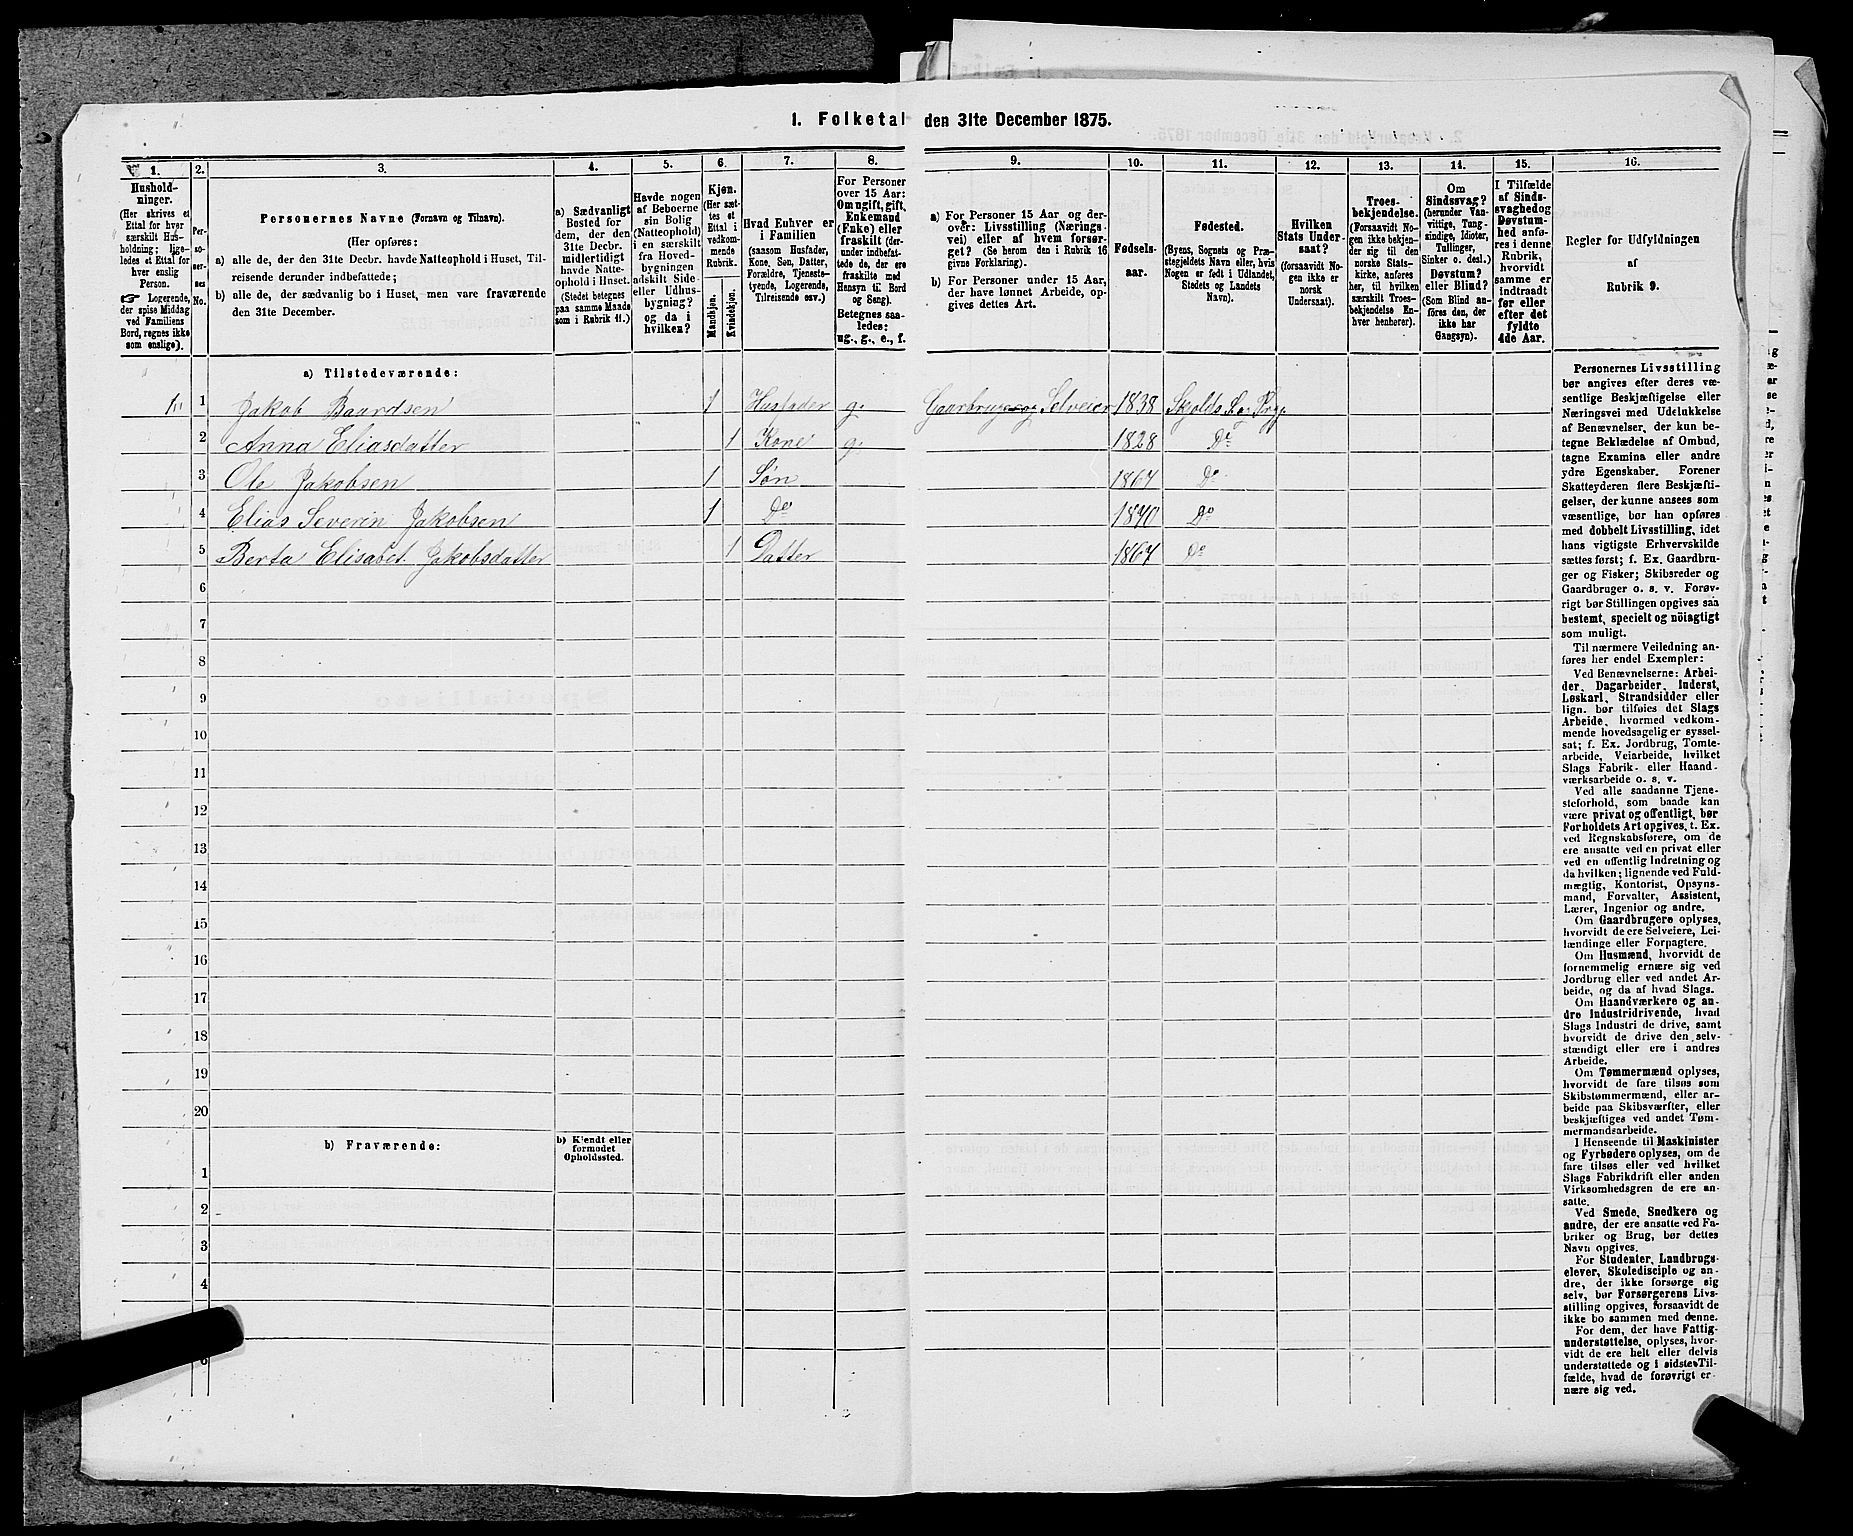 1. Folketal den 31te December 1875.
1.
2.
3.
4.
5.
6.
7.
8.
9.
10.
11.
12.
13.
14.
15.
16.
Hushold-
ninger.
(Her skrives et
Ettal for hver
særskilt Hus-
holdning; lige-
ledes et Ettal for
hver enslig
Person.
☞ Logerende,
der spise Middag
ved Familiens
Bord, regnes ikke
som enslige).
Per-
so-
ner-
nes
No.
Personernes Navne (Fornavn og Tilnavn).
(Her opføres:
a) alle de, der den 31te Decbr. havde Natteophold i Huset, Til-
reisende derunder indbefattede;
b) alle de, der sædvanlig bo i Huset, men vare fraværende
den 31te December.
a) Sædvanligt
Bosted for
dem, der den
31te Decbr.
midlertidigt
havde Natte-
ophold i Huset.
(Stedet betegnes
paa samme Maade
som i Rubrik 11.)
Havde nogen
af Beboerne
sin Bolig
(Natteophold)
i en særskilt
fra Hoved-
bygningen
adskilt Side-
eller Udhus-
bygning?
og da i
hvilken?
Kjøn.
(Her sæt-
tes et
Ettal i
vedkom-
mende
Rubrik.
Mandkjøn.
Kvindekjøn.
Hvad Enhver er
i Familien
(saasom Husfader,
Kone, Søn, Datter,
Forældre, Tjeneste-
tyende, Logerende,
Tilreisende osv.)
For Personer
over 15 Aar:
Om ugift, gift,
Enkemand
(Enke) eller
fraskilt (der-
under indbefat-
tede de, der ere
fraskilte med
Hensyn til Bord
og Seng).
Betegnes saa-
ledes:
ug., g., e., f.
a) For Personer 15 Aar og der-
over: Livsstilling (Nærings-
vei) eller af hvem forsør-
get? (Se herom den i Rubrik 16
givne Forklaring).
b) For Personer under 15 Aar,
der have lønnet Arbeide, op-
gives dettes Art.
Fødsels-
aar.
Fødested.
(Byens, Sognets og Præ-
stegjeldets Navn eller, hvis
Nogen er født i Udlandet,
Stedets og Landets
Navn).
Hvilken
Stats Under-
saat?
(forsaavidt No-
gen ikke er
norsk
Undersaat).
Troes-
bekjendelse.
(Forsaavidt No-
gen ikke bekjen-
der sig til den
norske Stats-
kirke, anføres
her, til hvilken
særskilt Troes-
bekjendelse En-
hver henhører).
Om
Sindssvag?
(herunder Van-
vittige, Tung-
sindige, Idioter,
Tullinger,
Sinker o. desl.)
Døvstum?
eller Blind?
(Som Blind an-
føres den, der
ikke har
Gangsyn).
I Tilfælde
af Sinds-
svaghed og
Døvstum-
hed anfø-
res i denne
Rubrik,
hvorvidt
samme er
indtraadt
før eller
efter det
fyldte
4de Aar.
Regler for Udfyldningen
af
Rubrik 9.
a) Tilstedeværende:
1 1 Jakob Baardsen 1 Husfader g. Gaarbruger og Selveier 1838
2 Anna Eliasdatter 1 Kone g. 1828 Do
3 Ole Jakobsen 1 Søn 1864 Do
4 Elias Severin Jakobsen 1 Do 1870 Do
5 Berta Elisabet Jakobsdatter 1 Datter 1867 Do
6
7
8
9
10
11
12
13
14
15
16
17
18
19
20
b) Fraværende:
b) Kjendt eller
formodet
Opholdssted.
1
2
3
4
6
Personernes Livsstilling
bør angives efter deres væ-
sentlige Beskjæftigelse eller
Næringsvei med Udelukkelse
af Benævnelser, der kun be-
tegne Beklædelse af Ombud,
tagne Examina eller andre
ydre Egenskaber. Forener
Skatteyderen flere Beskjæfti-
gelser, der kunne ansees som
væsentlige, bør han opføres
med dobbelt Livsstilling, idet
hans vigtigste Erhvervskilde
sættes først; f. Ex. Gaardbru-
ger og Fisker; Skibsreder og
Gaardbruger o. s. v. Forøv-
rigt bør Stillingen opgives saa
bestemt, specielt og nöiagtigt
som muligt.
Til nærmere Veiledning an-
føres her endel Exempler:
Ved Benævnelserne: Arbei-
der, Dagarbeider, Inderst,
Løskarl, Strandsidder eller
lign. bør tilføies det Slags
Arbeide, hvormed vedkom-
mende hovedsagelig er syssel-
sat; f. Ex. Jordbrug, Tomte-
arbeide, Veiarbeide, hvilket
Slags Fabrik- eller Haand-
værksarbeide o. s. v.
Ved alle saadanne Tjene-
steforhold, som baade kan
være privat og offentligt, bør
Forholdets Art opgives, t. Ex.
ved Regnskabsførere, om de
ere ansatte ved en privat eller
ved en offentlig Indretning og
da hvilken; lignende ved Fuld-
mægtig, Kontorist, Opsyns-
mand, Forvalter, Assistent,
Lærer, Ingeniør og andre.
Om Gaardbrugere oplyses,
hvorvidt de ere Selveiere, Lei-
lændinge eller Forpagtere.
Om Husmænd, hvorvidt de
fornemmelig ernære sig ved
Jordbrug eller ved andet Ar-
beide, og da af hvad Slags.
Om Haandværkere og an-
dre Industridrivende, hvad
Slags Industri de drive, samt
hvorvidt de drive den selv-
stændigt eller ere i andres
Arbeide.
Om Tømmermænd oplyses,
hvorvidt de fare tilsøs som
Skibstømmermænd, eller ar-
beide paa Skibsværfter, eller
beskjæftiges ved andet Tøm-
mermandsarbeide.
I Henseende til Maskinister
og Fyrbødere oplyses, om de
fare tilsøs eller ved hvilket
Slags Fabrikdrift eller anden
Virksomhedsgren de ere an-
satte.
Ved Smede, Snedkere og
andre, der ere ansatte ved Fa-
briker og Brug, bør dettes
Navn opgives.
For Studenter, Landbrugs-
elever, Skoledisciple og an-
dre, der ikke forsørge sig
selv, bør Forsørgerens Livs-
stilling opgives, forsaavidt de
ikke bo sammen med denne.
For dem, der have Fattig-
understøttelse, oplyses, hvor-
vidt de ere helt eller delvis
understøttede og i sidste Til-
fælde, hvad de forøvrigt er-
nære sig ved.